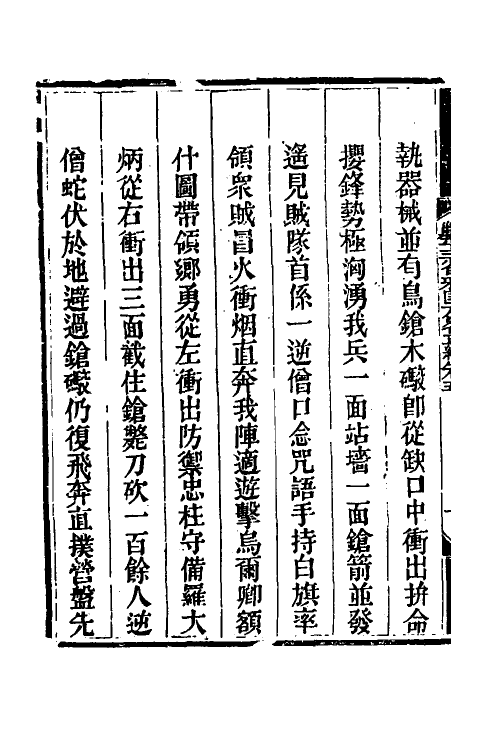 執器械並有鳥鎗木礮卽從缺口中衝出拚命
攖鋒勢極洶湧我兵一面站墻一面鎗箭並發
遙見賊隊首係一逆僧口念咒語手持白旗率
領衆賊冒火衝烟直奔我陣適遊擊烏爾卿額
什圖帶領鄉勇從左衝出防禦忠柱守備羅大
炳從右衝出三面截住鎗斃刀砍一百餘人逆
僧蛇伏於地避過鎗礮仍復飛奔直撲營盤先